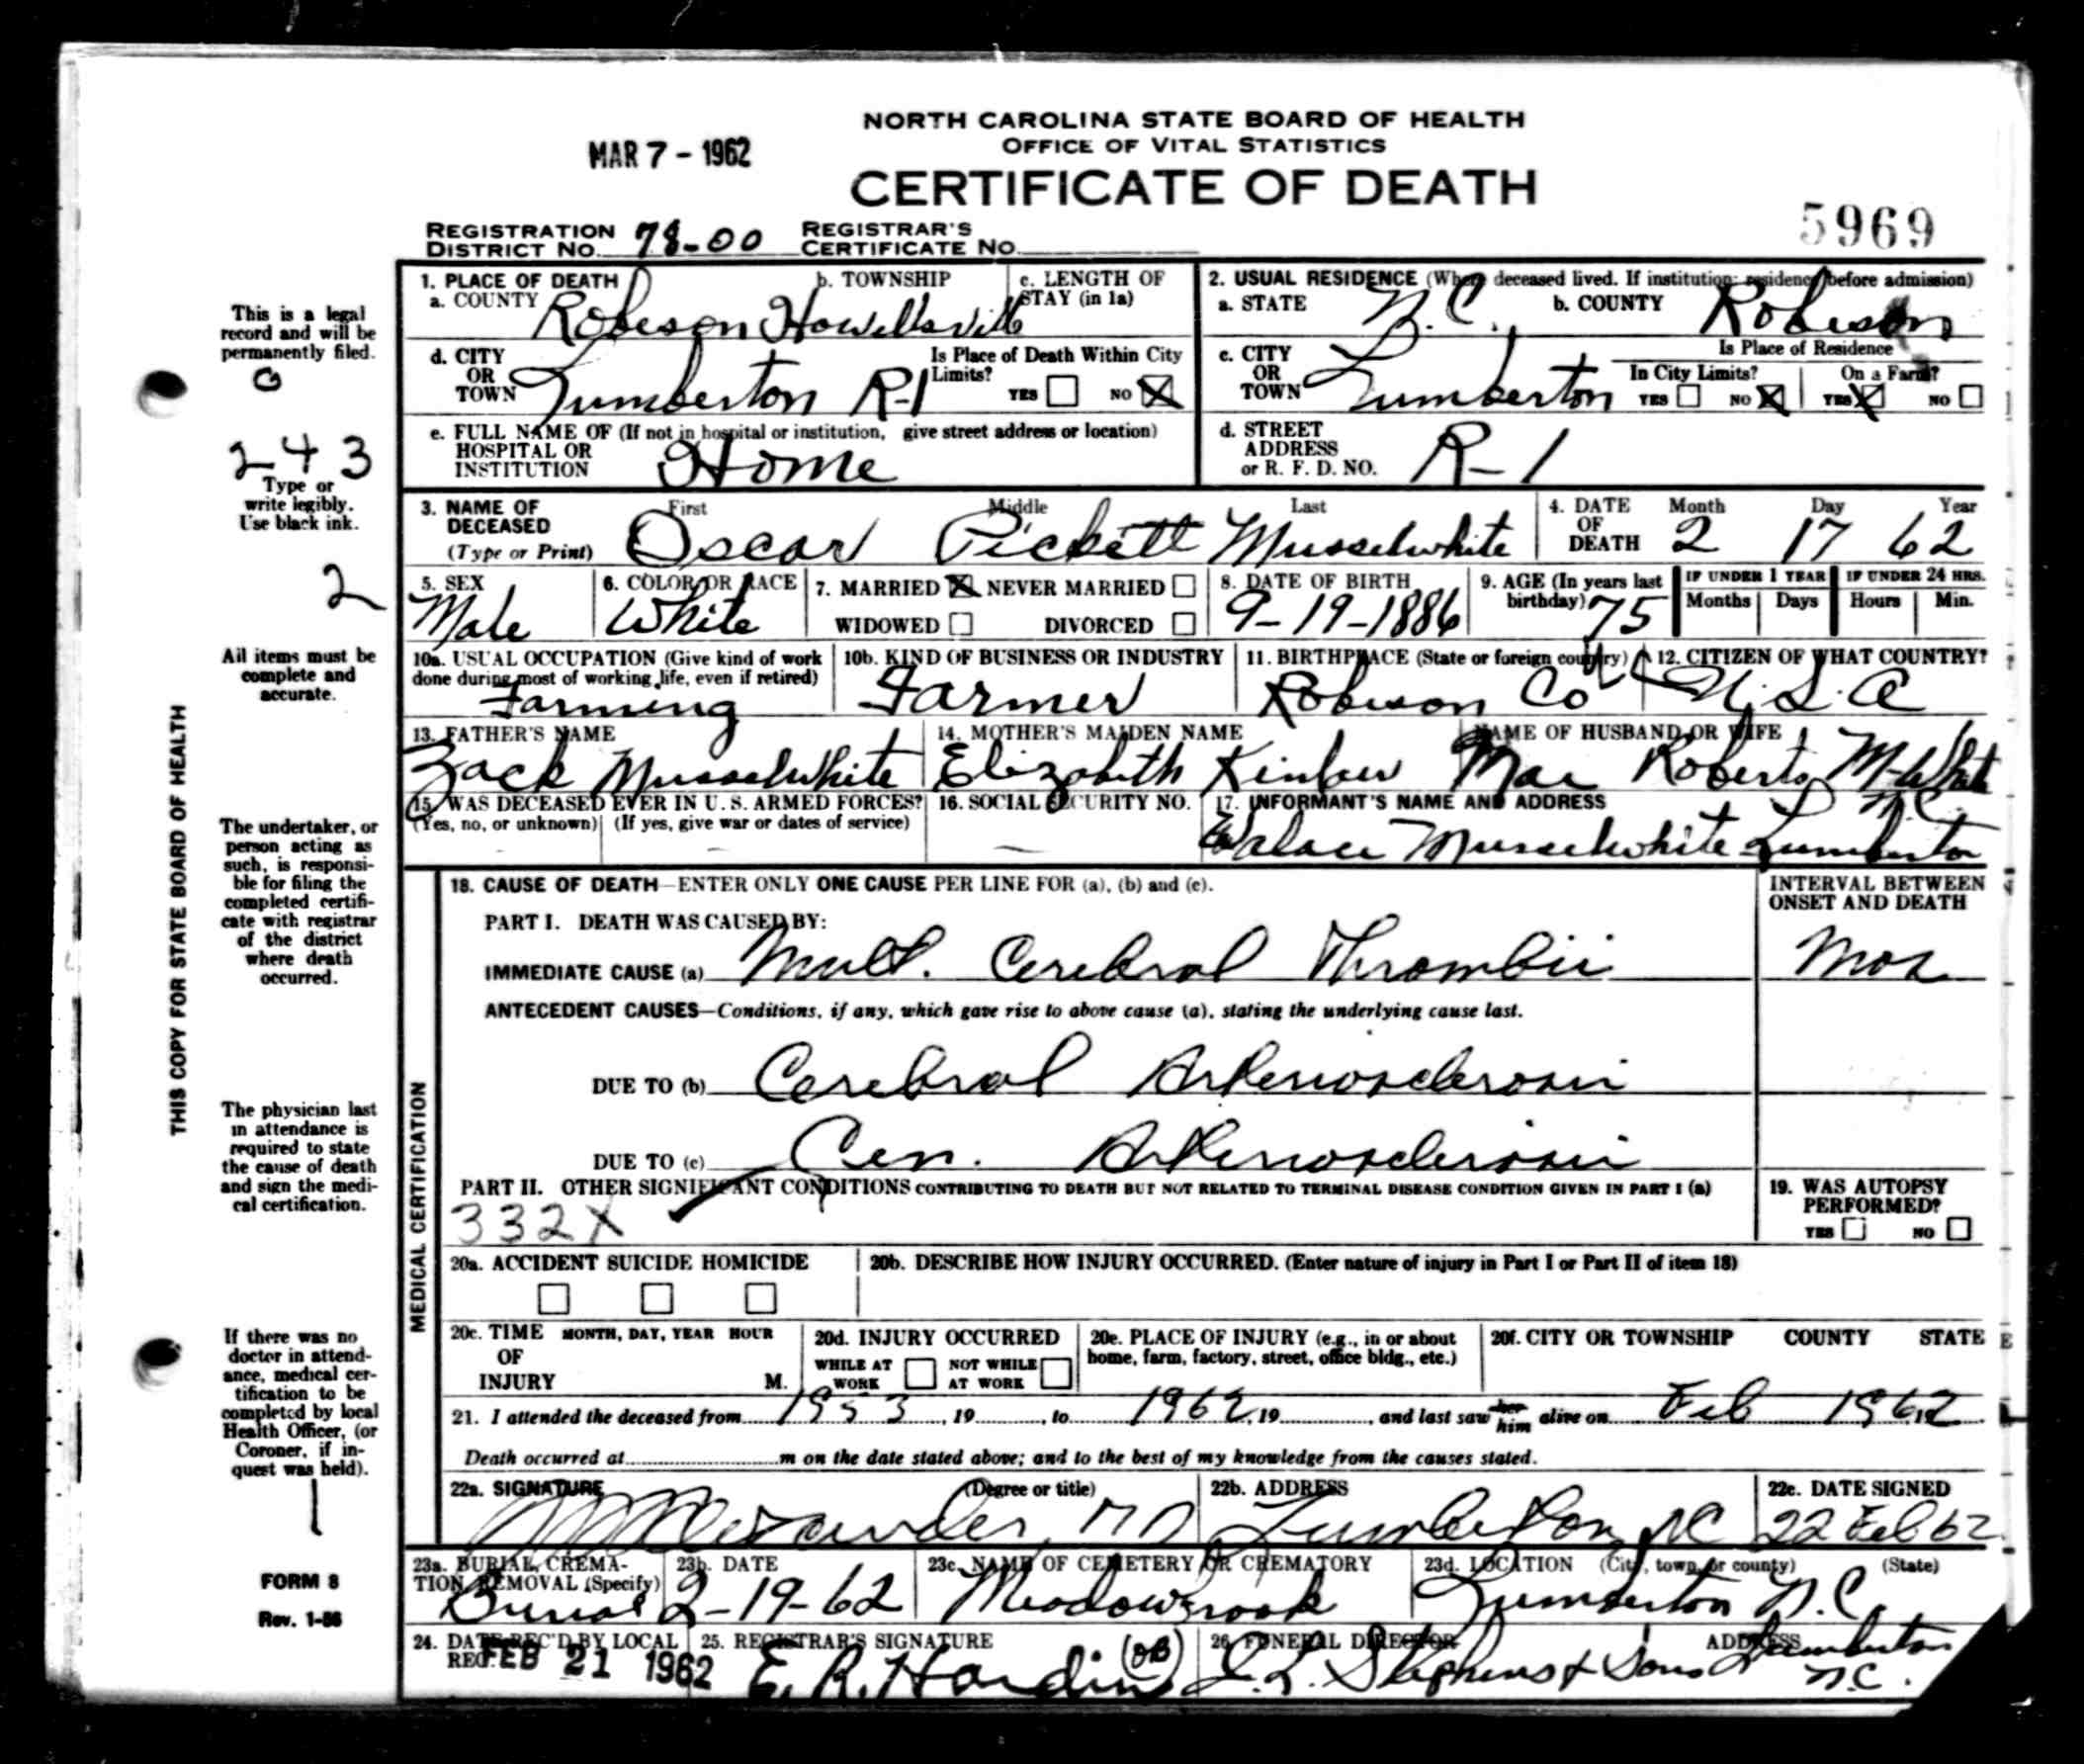 NORTH CAROLINA STATE BOARD OF HEALTH
OFFICE OF VITAL STATISTICS
MAR 7 - 1962
CERTIFICATE OF DEATH
5969
REGISTRATION DISTRICT NO. 78-00 REGISTRAR'S CERTIFICATE NO.
1. PLACE OF DEATH
a. COUNTY Robeson b. TOWNSHIP Howellsville c. LENGTH OF STAY (in 1a)
2. USUAL RESIDENCE (Where deceased lived. If institution: residence before admission)
a. STATE N.C. b. COUNTY Robeson
d. CITY OR TOWN Lumberton R-1 Is Place of Death Within City Limits? YES NO X
c. CITY OR TOWN Lumberton Is Place of Residence In City Limits? YES NO X On a Farm? YES X NO
e. FULL NAME OF (If not in hospital or institution, give street address or location) HOSPITAL OR INSTITUTION Home
d. STREET ADDRESS or R. F. D. NO. R-1
3. NAME OF DECEASED (Type or Print) First Middle Last
Oscar Pickett Musselwhite
4. DATE OF DEATH Month Day Year
2 17 62
5. SEX Male
6. COLOR OR RACE White
7. MARRIED X NEVER MARRIED WIDOWED DIVORCED
8. DATE OF BIRTH 9-19-1886
9. AGE (In years last birthday) 75 IF UNDER 1 YEAR Months Days IF UNDER 24 HRS. Hours Min.
10a. USUAL OCCUPATION (Give kind of work done during most of working life, even if retired) Farming
10b. KIND OF BUSINESS OR INDUSTRY Farmer
11. BIRTHPLACE (State or foreign country) Robeson Co
12. CITIZEN OF WHAT COUNTRY? U.S.A
13. FATHER'S NAME Zack Musselwhite
14. MOTHER'S MAIDEN NAME Elizabith
NAME OF HUSBAND OR WIFE Mae Roberts
15. WAS DECEASED EVER IN U. S. ARMED FORCES? (Yes, no, or unknown) (If yes, give war or dates of service)
16. SOCIAL SECURITY NO.
17. INFORMANT'S NAME AND ADDRESS Musselwhite Lumberton N.C.
18. CAUSE OF DEATH—ENTER ONLY ONE CAUSE PER LINE FOR (a), (b) and (c).
INTERVAL BETWEEN ONSET AND DEATH
PART I. DEATH WAS CAUSED BY:
IMMEDIATE CAUSE (a) Mult. Cerebral Thrombii Mos
ANTECEDENT CAUSES—Conditions, if any, which gave rise to above cause (a), stating the underlying cause last.
DUE TO (b) Cerebral Arteriosclerosis
DUE TO (c) Gen. Arteriosclerosis
PART II. OTHER SIGNIFICANT CONDITIONS CONTRIBUTING TO DEATH BUT NOT RELATED TO TERMINAL DISEASE CONDITION GIVEN IN PART I (a)
332X
19. WAS AUTOPSY PERFORMED? YES NO
20a. ACCIDENT SUICIDE HOMICIDE
20b. DESCRIBE HOW INJURY OCCURRED. (Enter nature of injury in Part I or Part II of item 18)
20c. TIME OF INJURY MONTH, DAY, YEAR HOUR M.
20d. INJURY OCCURRED WHILE AT WORK NOT WHILE AT WORK
20e. PLACE OF INJURY (e.g., in or about home, farm, factory, street, office bldg., etc.)
20f. CITY OR TOWNSHIP COUNTY STATE
21. I attended the deceased from 1953, 19 , to 1962, 19 , and last saw her him alive on Feb 1962.
Death occurred at m on the date stated above; and to the best of my knowledge from the causes stated.
22a. SIGNATURE (Degree or title) MD
22b. ADDRESS Lumberton, NC
22c. DATE SIGNED 22 Feb 62
23a. BURIAL, CREMATION, REMOVAL (Specify) Burial
23b. DATE 2-19-62
23c. NAME OF CEMETERY OR CREMATORY Meadowbrook
23d. LOCATION (City, town, or county) (State) Lumberton N.C.
24. DATE REC'D BY LOCAL REG. FEB 21 1962
25. REGISTRAR'S SIGNATURE E. R. Hardin
26. FUNERAL DIRECTOR ADDRESS Stephens & Sons Lumberton N.C.
THIS COPY FOR STATE BOARD OF HEALTH
MEDICAL CERTIFICATION
This is a legal
record and will be
permanently filed.
0
243
Type or
write legibly.
Use black ink.
2
All items must be
complete and
accurate.
The undertaker, or
person acting as
such, is responsi-
ble for filing the
completed certifi-
cate with registrar
of the district
where death
occurred.
The physician last
in attendance is
required to state
the cause of death
and sign the medi-
cal certification.
If there was no
doctor in attend-
ance, medical cer-
tification to be
completed by local
Health Officer, (or
Coroner, if in-
quest was held).
1
FORM 8
Rev. 1-56